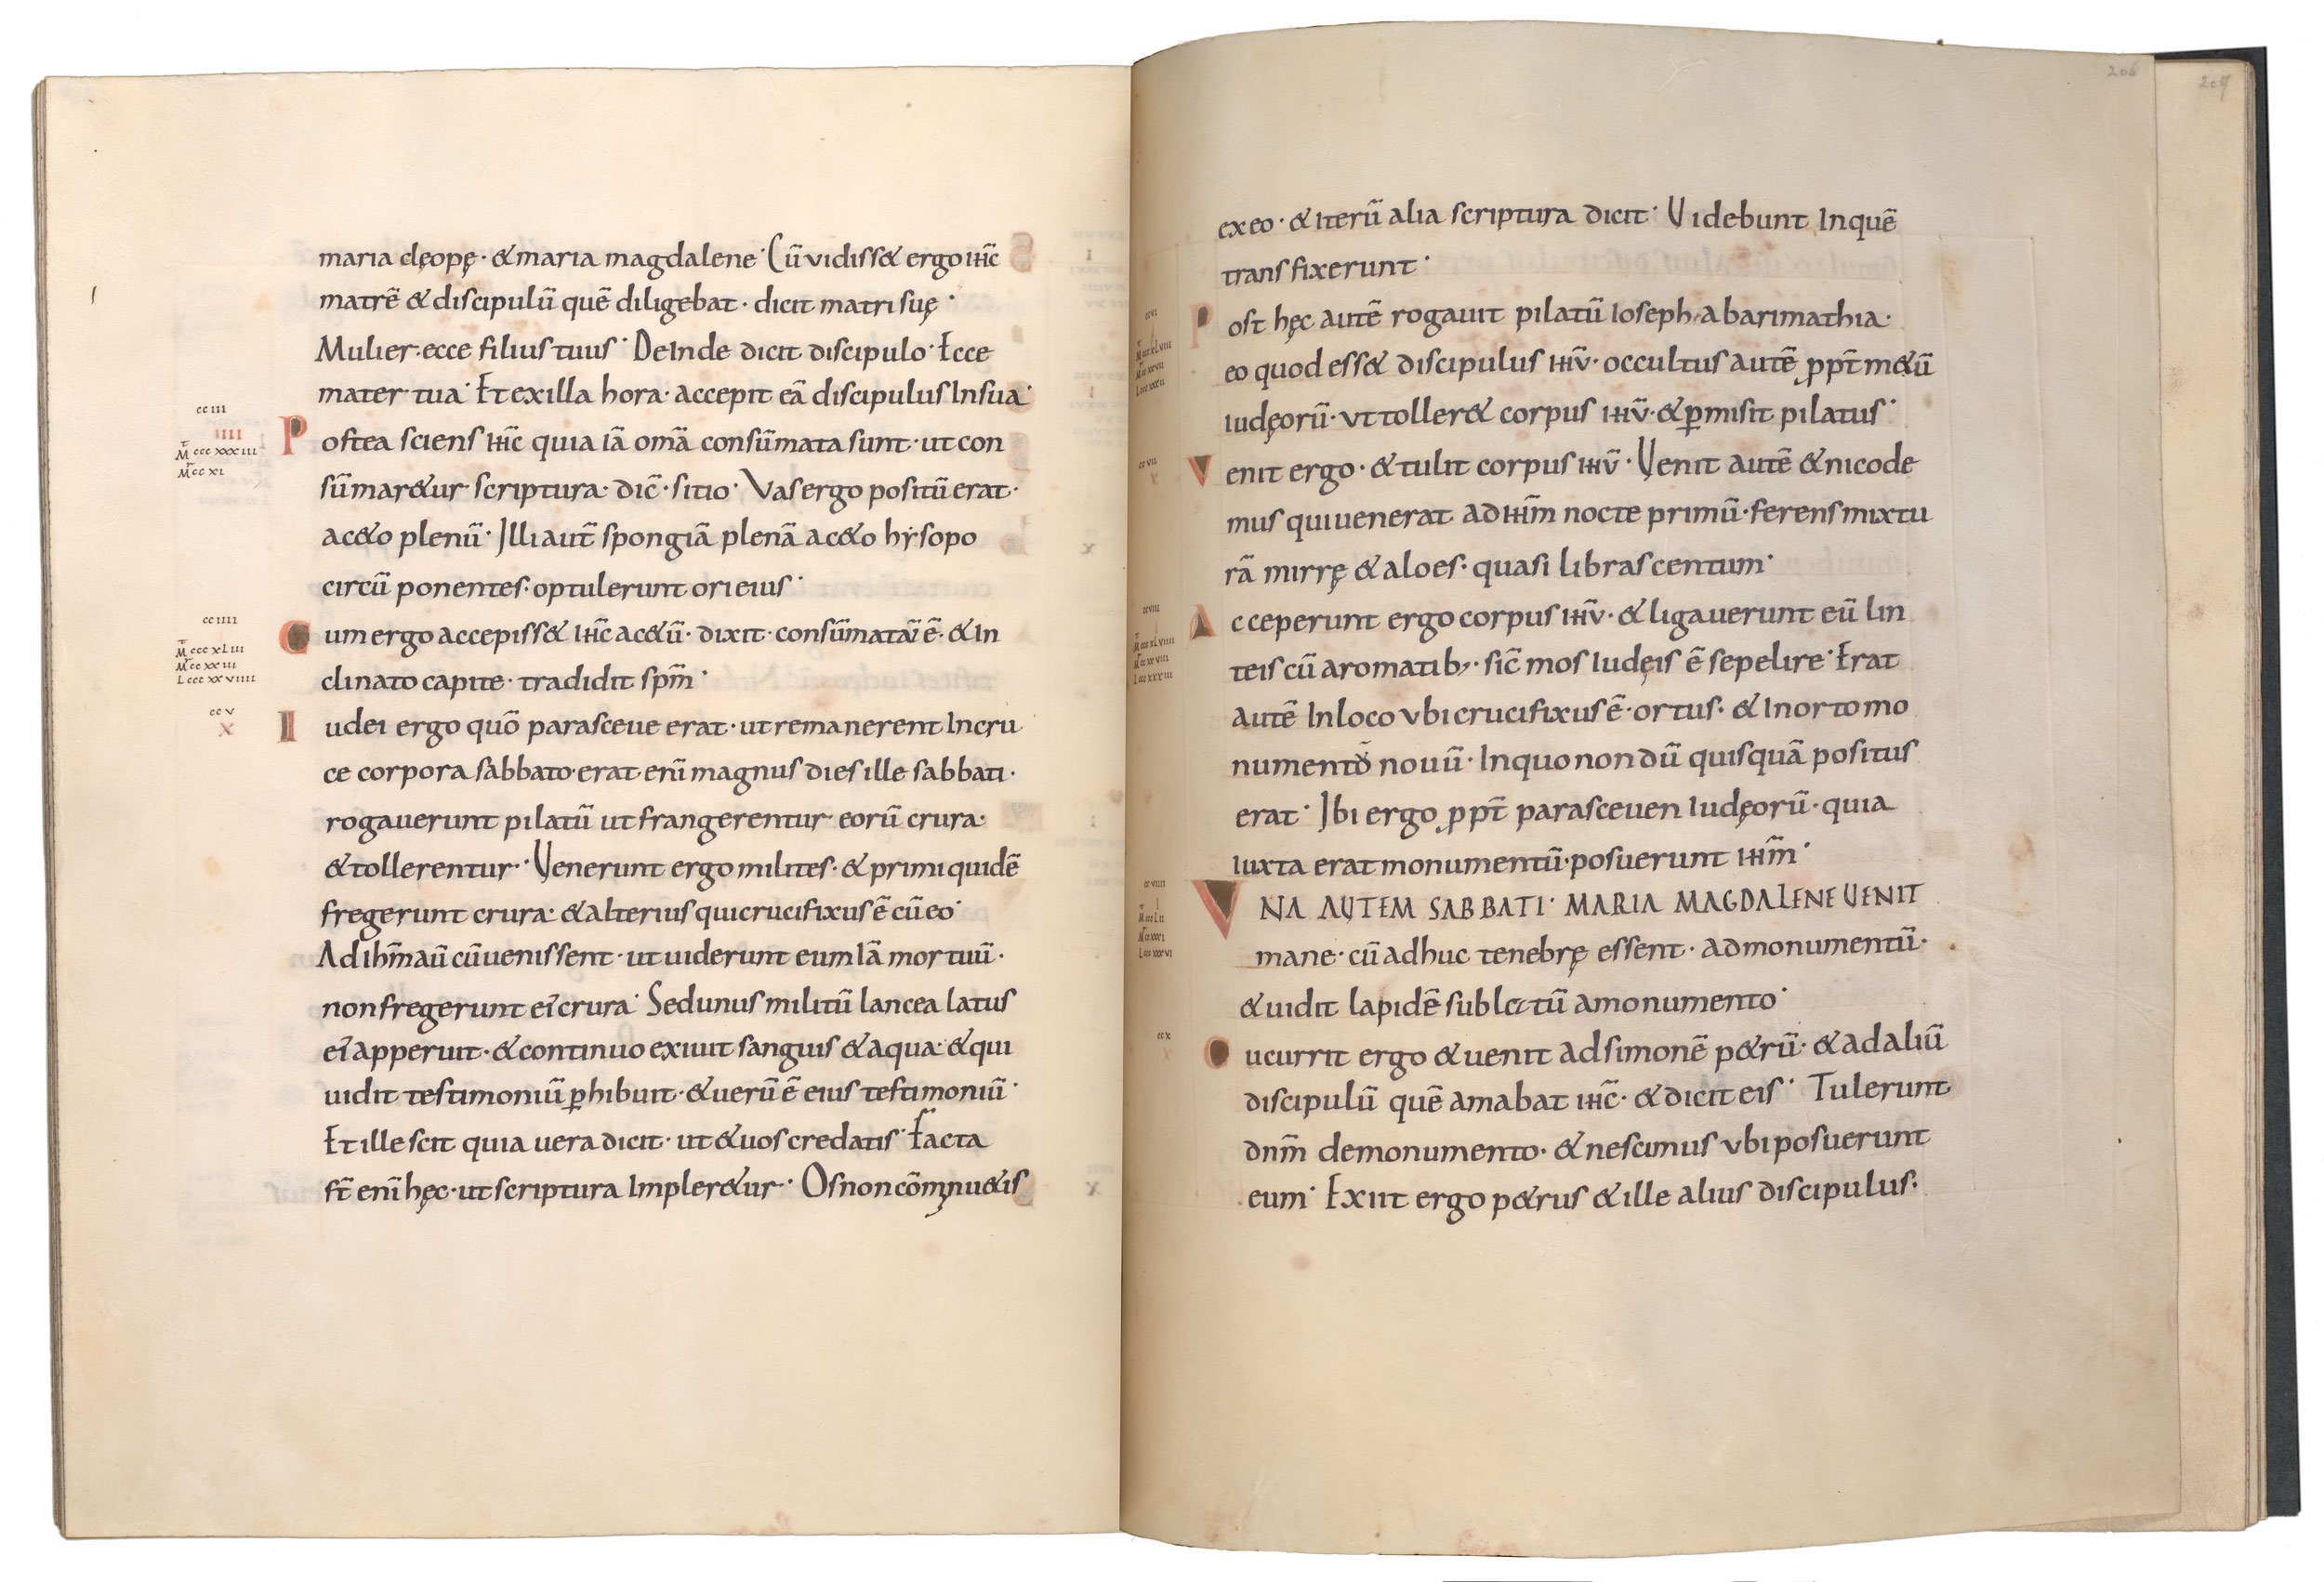 maria clęopę · & maria magdalene · Cū vidiss& ergo ihc̄
matrē & discipulū quē diligebat · dicit matri suę ·
Mulier · ecce filius tuus · Deinde dicit discipulo · Ecce
mater tua · Et ex illa hora · accepit eā discipulus In sua ·
cc iii
iiii
M̄ ccc xxx iii
M̄ cc xi
P ostea sciens ihc̄ quia iā om̄a consūmata sunt · ut con
sūmar&ur scriptura · dic̄ · sitio · Vas ergo positū erat ·
ac&o plenū · Illi aut̄ spongiā plenā ac&o hẏsopo
circū ponentes · optulerunt ori eius ·
cc iiii
M̄ ccc xL iii
M̄ cc xx iii
L ccc xx viiii
C um ergo accepiss& ihc̄ ac&ū · dixit · consūmatū ē · & In
clinato capite · tradidit spm̄ ·
cc v
x
I udei ergo quō parasceue erat · ut remanerent In cru
ce corpora sabbato · erat enī magnus dies ille sabbati ·
rogauerunt pilatū ut frangerentur eorū crura ·
& tollerentur · Venerunt ergo milites · & primi quidē
fregerunt crura · & alterius qui crucifixus ē cū eo ·
Ad ihm̄ aū cū uenissent · ut uiderunt eum Iā mortuū ·
non fregerunt ei crura · Sed unus militū lancea latus
ei apperuit · & continuo exiuit sanguis & aqua · & qui
uidit testimoniū p̱hibuit · & uerū ē eius testimoniū ·
Et ille scit quia uera dicit · ut & uos credatis · Facta
st̄ enī hęc · ut scriptura Impler&ur · Os non cōminu&is
206
207
ex eo · & iterū alia scriptura dicit · Videbunt In quē
transfixerunt ·
cc vi
i
M̄ ccc xL viii
M̄ cc xx vii
L ccc xxx ii
P ost hęc autē rogauit pilatū Ioseph · ab arimathia ·
eo quod ess& discipulus ihū · occultus autē ppt̄ m&ū
iudęorū · vt toller& corpus ihū · & p̱misit pilatus ·
cc vii
x
V enit ergo · & tulit corpus ihū · Venit autē & nicode
mus qui uenerat ad ihm̄ nocte primū · ferens mixtu
rā mirrę & aloes · quasi libras centum ·
cc viii
i
M̄ ccc xL viiii
M̄ cc xx viii
L ccc xxx iii
A cceperunt ergo corpus ihū · & ligauerunt eū lin
teis cū aromatib; · sic̄ mos Iudęis ē sepelire · Erat
autē In loco vbi crucifixus ē · ortus · & In orto mo
numentō nouū · In quo nondū quisquā positus
erat · Ibi ergo ppt̄ parasceuen Iudęorū · quia
iuxta erat monumentū · posuerunt ihm̄ ·
cc viiii
i
M̄ ccc L ii
M̄ cc xxx i
L ccc xxx vi
V NA AUTEM SABBATI · MARIA MAGDALENE UENIT
mane · cū adhuc tenebrę essent · ad monumentū ·
& uidit lapidē sublectū a monumento ·
cc x
x
C ucurrit ergo & uenit ad simonē p&rū · & ad aliū
discipulū quē amabat ihc̄ · & dicit eis · Tulerunt
dnm̄ de monumento · & nescimus vbi posuerunt
eum · Exiit ergo p&rus & ille alius discipulus ·